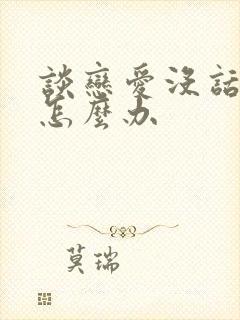 談戀愛沒話
怎麼办
莫瑞